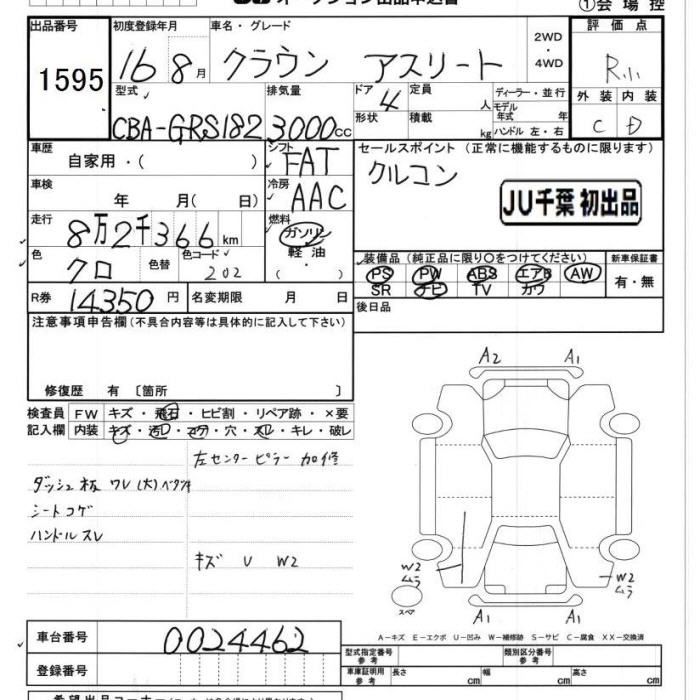 ①会場控
出品番号 1595
初度登録年月 16 8月
車名・グレード クラウン アスリート
2WD
・
4WD
評価点 R小
外装 内装
C D
型式 CBA-GRS182
排気量 3000cc
ドア 4
形状
定員 人
積載 kg
ディーラー・並行
モデル年式 年式
ハンドル 左・右
車歴 自家用・( )
シフト FAT
セールスポイント (正常に機能するものに限ります)
クルコン
JU千葉 初出品
車検 年 月( 日)
冷房 AAC
走行 8万2千366km
燃料 ガソリン
軽油
( ・ )
色 クロ 色替 色コード 202
装備品(純正品に限り○をつけてください) 新車保証書
PS PW ABS エアB AW 有・無
SR ナビ TV カワ
R券 14350円 名変期限 月 日
後日品
注意事項申告欄(不具合内容等は具体的に記入して下さい)
修復歴 有〔箇所 〕
検査員 FW キズ・飛石・ヒビ割・リペア跡・×要
記入欄 内装 キズ・汚レ・コゲ・穴・スレ・キレ・破レ
左センターピラー加修
ダッシュ板 ワレ(大)ベタツキ
シートコゲ
ハンドルスレ
キズ U W2
A2 A1
W2
ムラ
W2
ムラ
スペア
A1 A1
A-キズ E-エクボ U-凹み W-補修跡 S-サビ C-腐食 XX-交換済
車台番号 0024462
登録番号
型式指定番号 参考
類別区分番号 参考
車庫証明用 参考 長さ cm 幅 cm 高さ cm